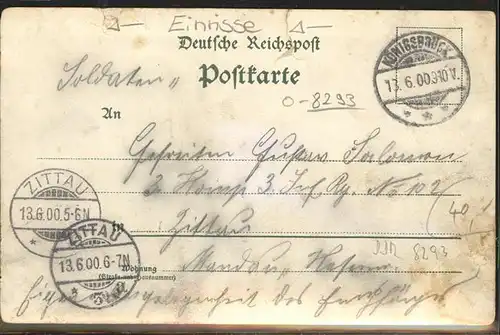 Einrisse
Deutsche Reichspost
Postkarte
Soldaten
O-8293
KÖNIGSBRÜCK
13.6.00.
An
Gefreiten Gustav Salomon
3. Komp. 3. Inf. Rg. No 102
ZITTAU
13.6.00.5-6N
in
Zittau
40,-
ZITTAU
13.6.00.6-7N
Wohnung
(Straße und Hausnummer)
Mandau
8293
Eigene Angelegenheit des Empfängers